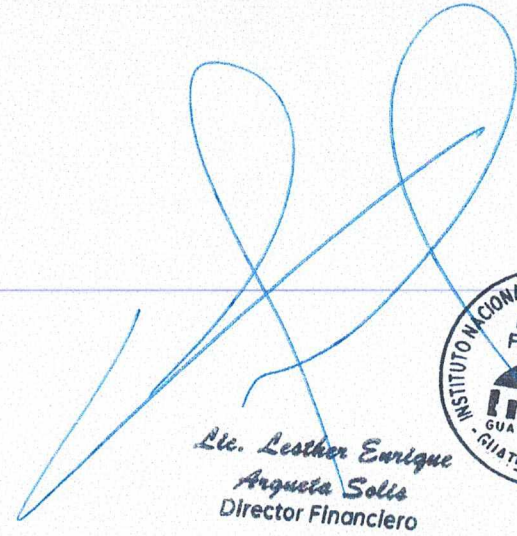 Lic. Lesther Enrique
Argueta Solis
Director Financiero
INSTITUTO NACIONAL